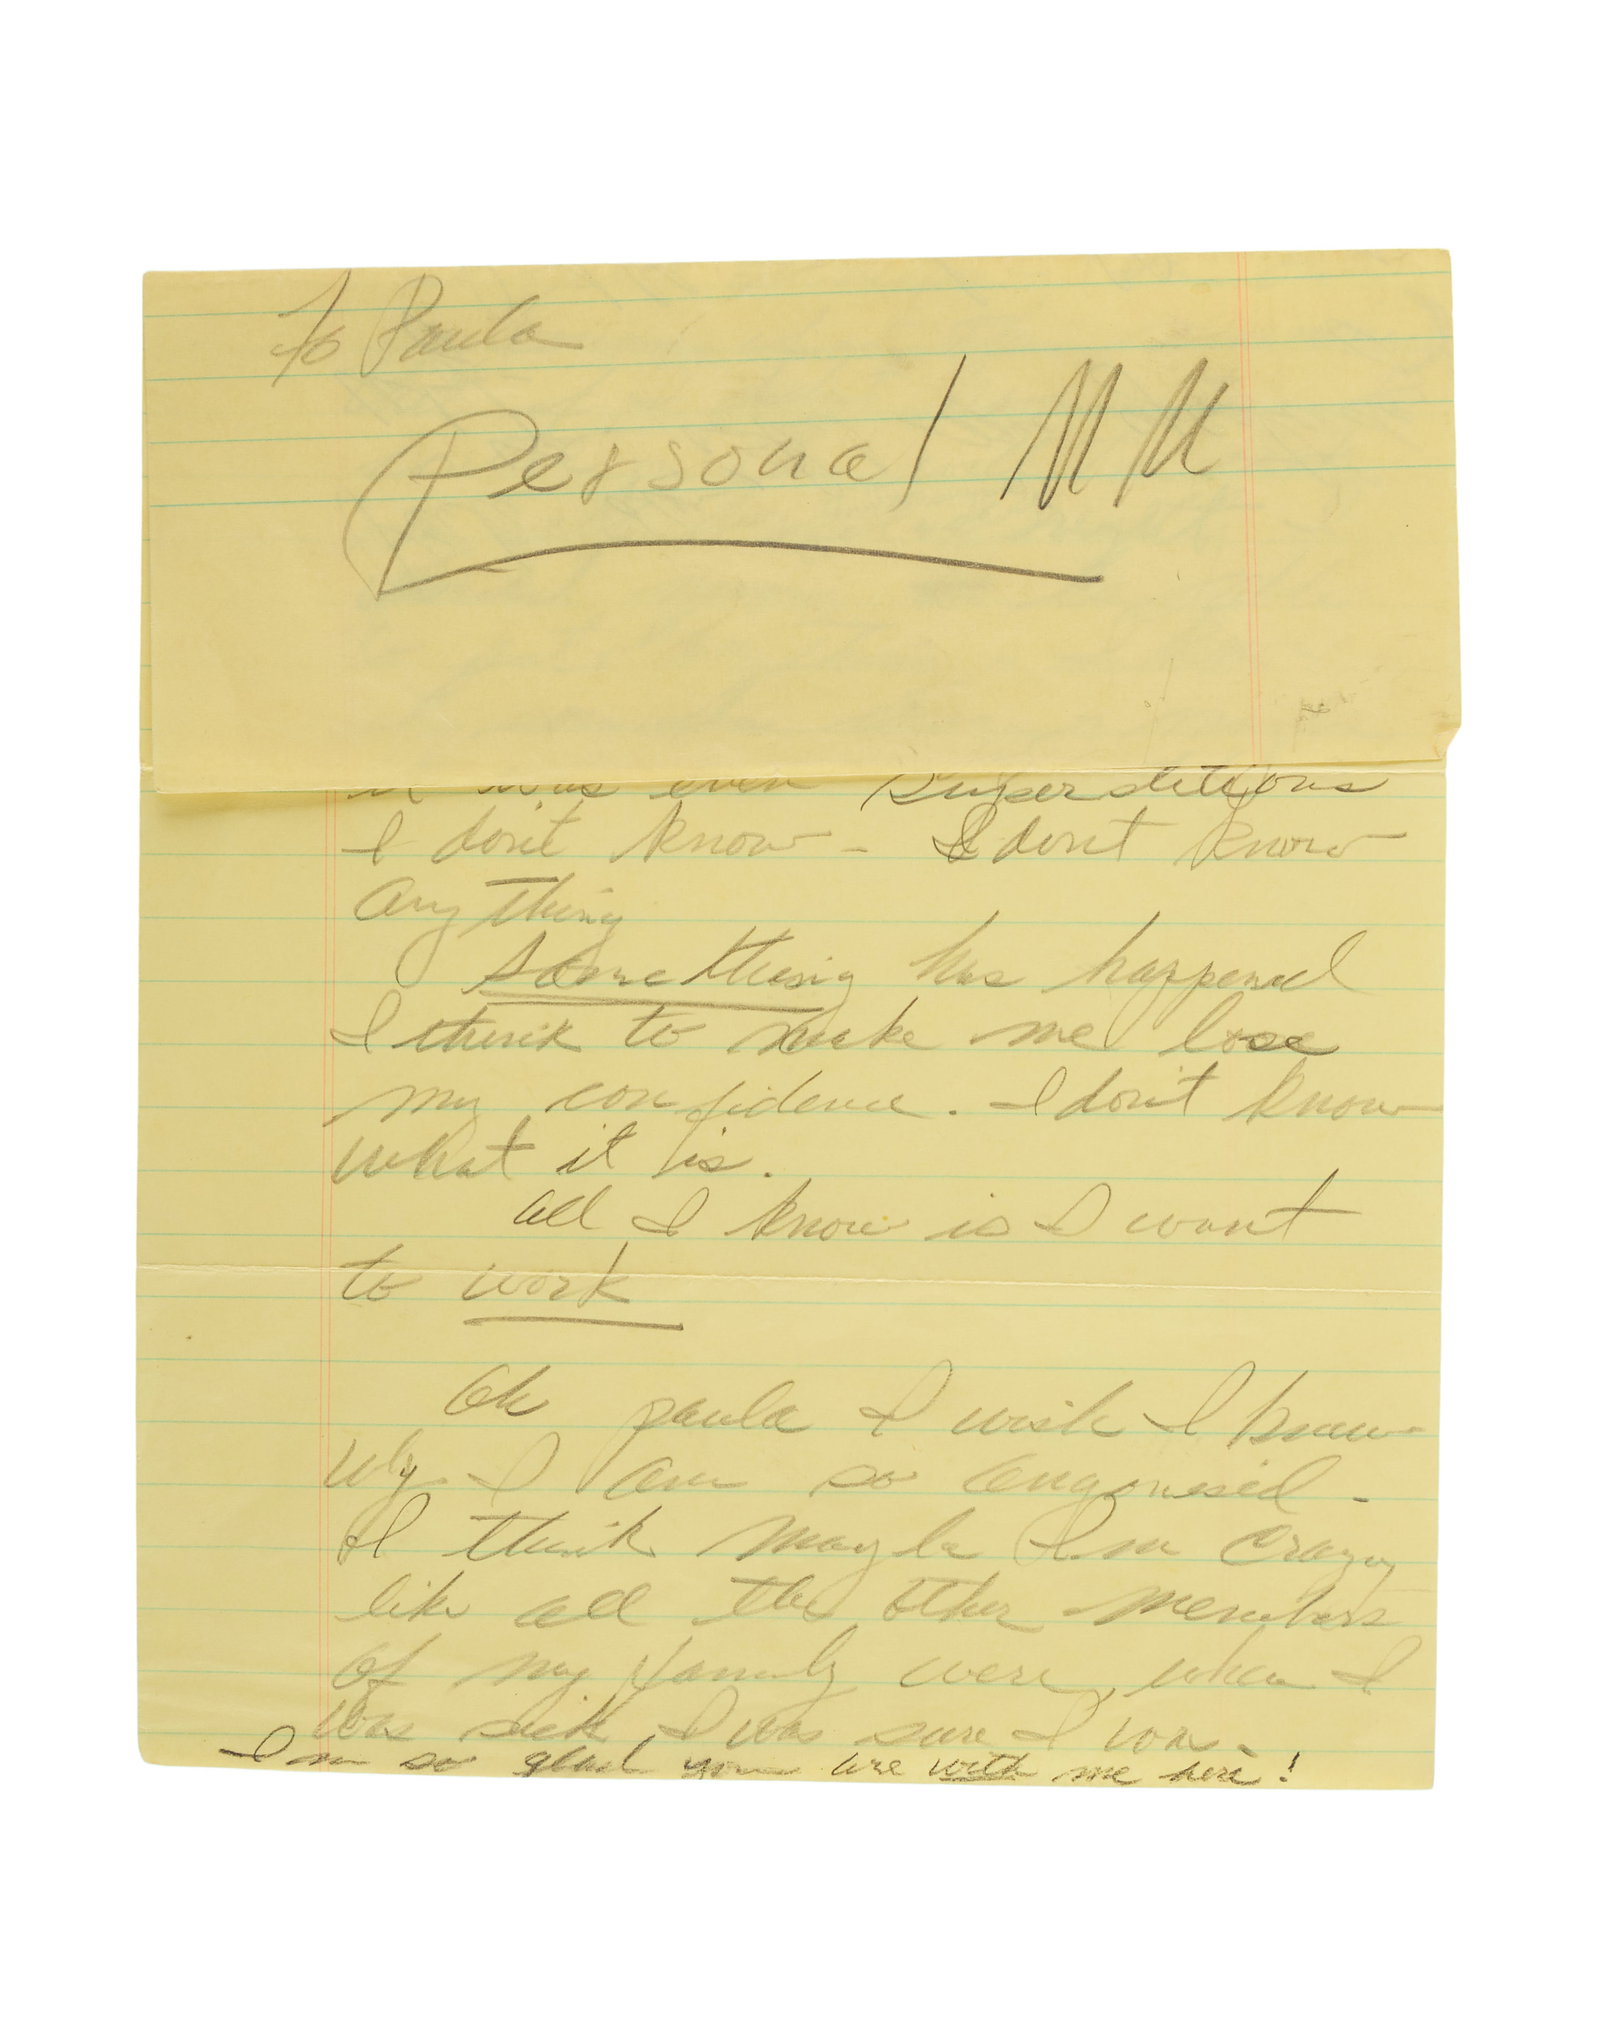 To Paula
Personal MM
it was even supersititions
I don't know - I don't know
anything
something has happened
I think to make me lose
my confidence. I don't know
what it is.
all I know is I want
to work
Oh paula I wish I knew
why I am so anguonised -
I think maybe I'm crazy
like all the other members
of my family were, when I
was sick I was sure I was.
I'm so glad you are with me here!